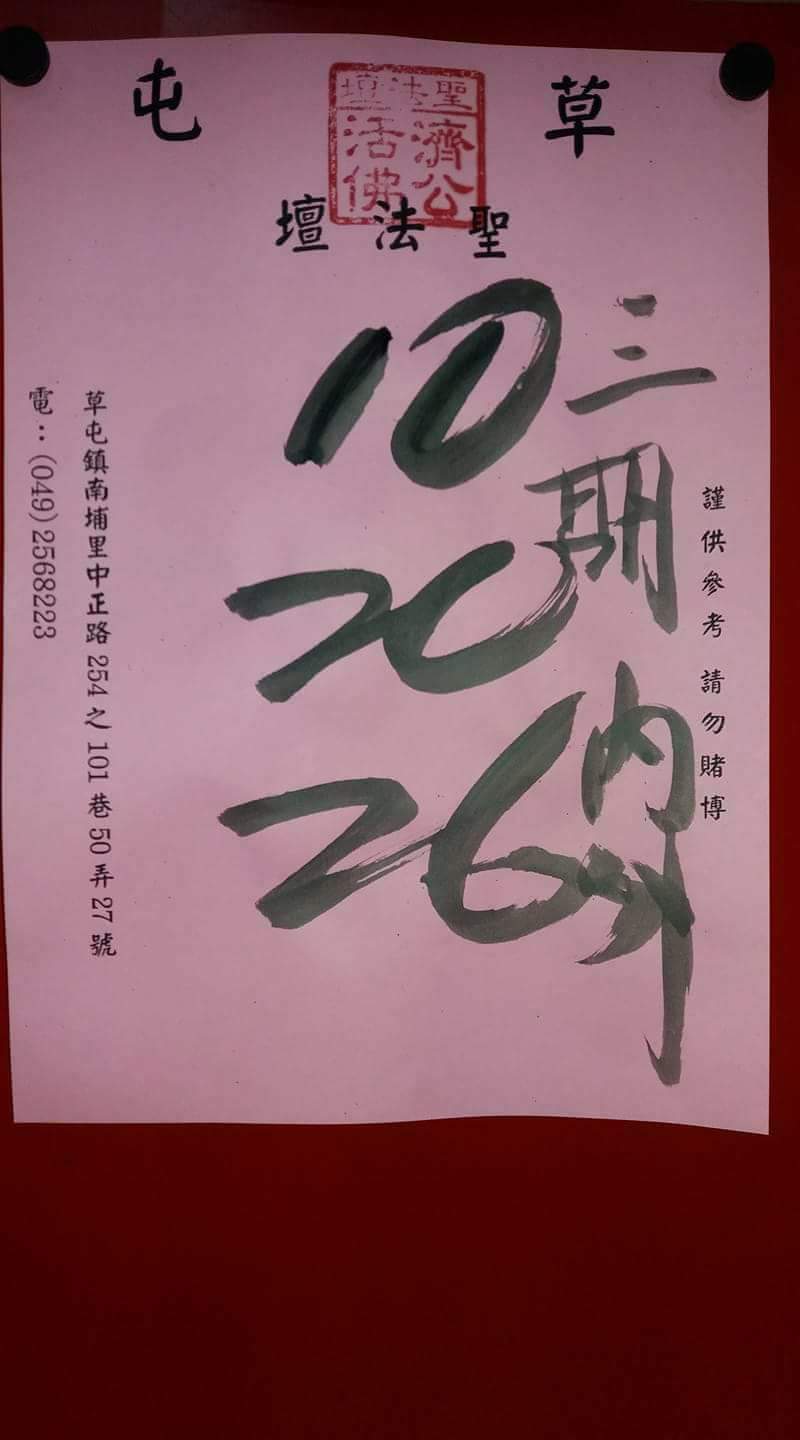 草屯
聖法壇
濟公
活佛
聖法壇
謹供參考 請勿賭博
三期內
10
20
26
草屯鎮南埔里中正路254之101巷50弄27號
電：(049)2568223